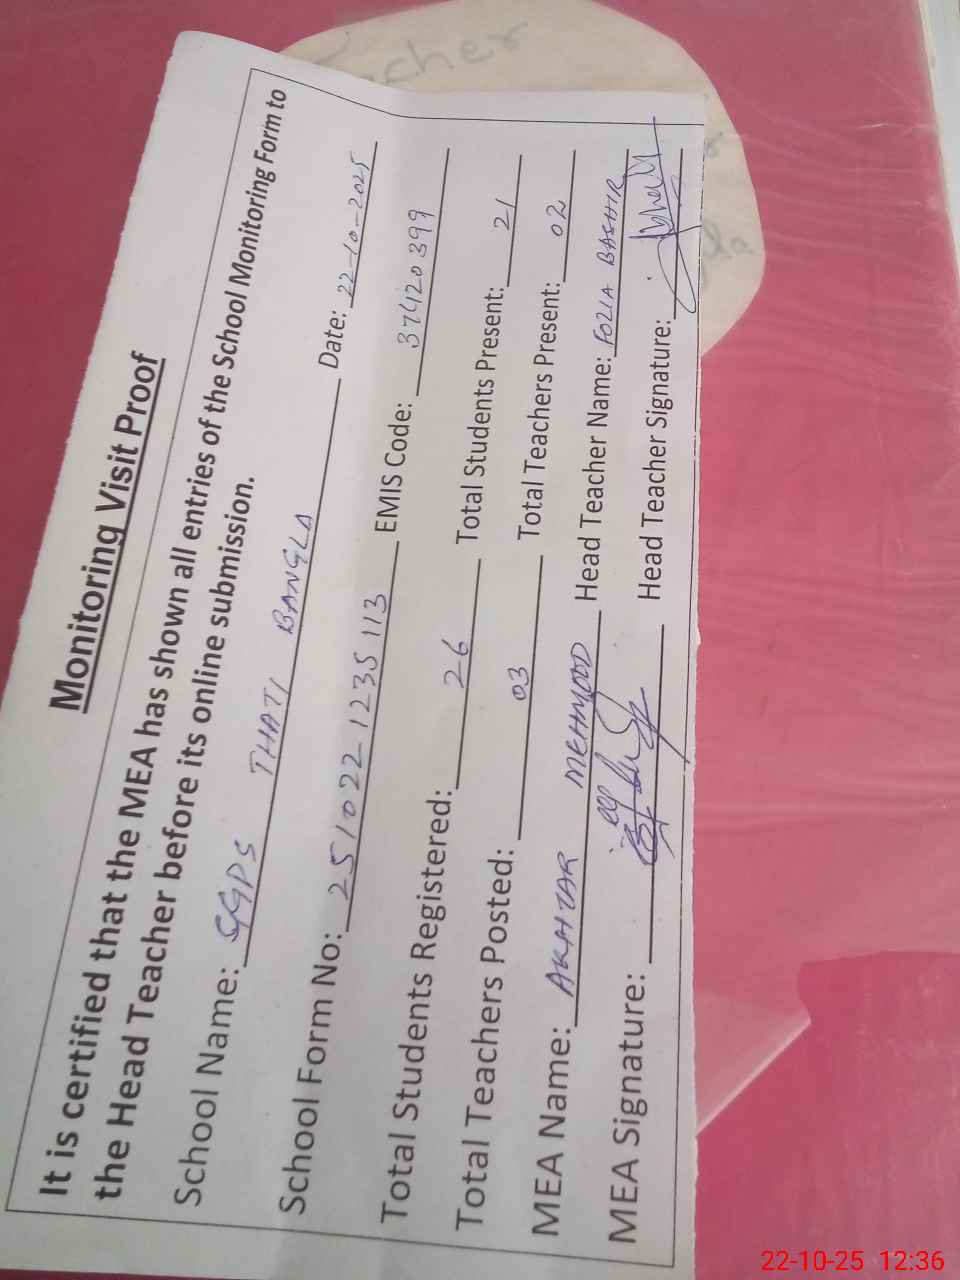 Monitoring Visit Proof
It is certified that the MEA has shown all entries of the School Monitoring Form to
the Head Teacher before its online submission.
School Name: GGPS THATI BANGLA Date: 22-10-2025
School Form No: 2510221235113 EMIS Code: 37420399
Total Students Registered: 26 Total Students Present: 21
Total Teachers Posted: 03 Total Teachers Present: 02
MEA Name: AKHTAR MEHMOOD Head Teacher Name: FOZIA BASHIR
MEA Signature: Head Teacher Signature:
22-10-25 12:36